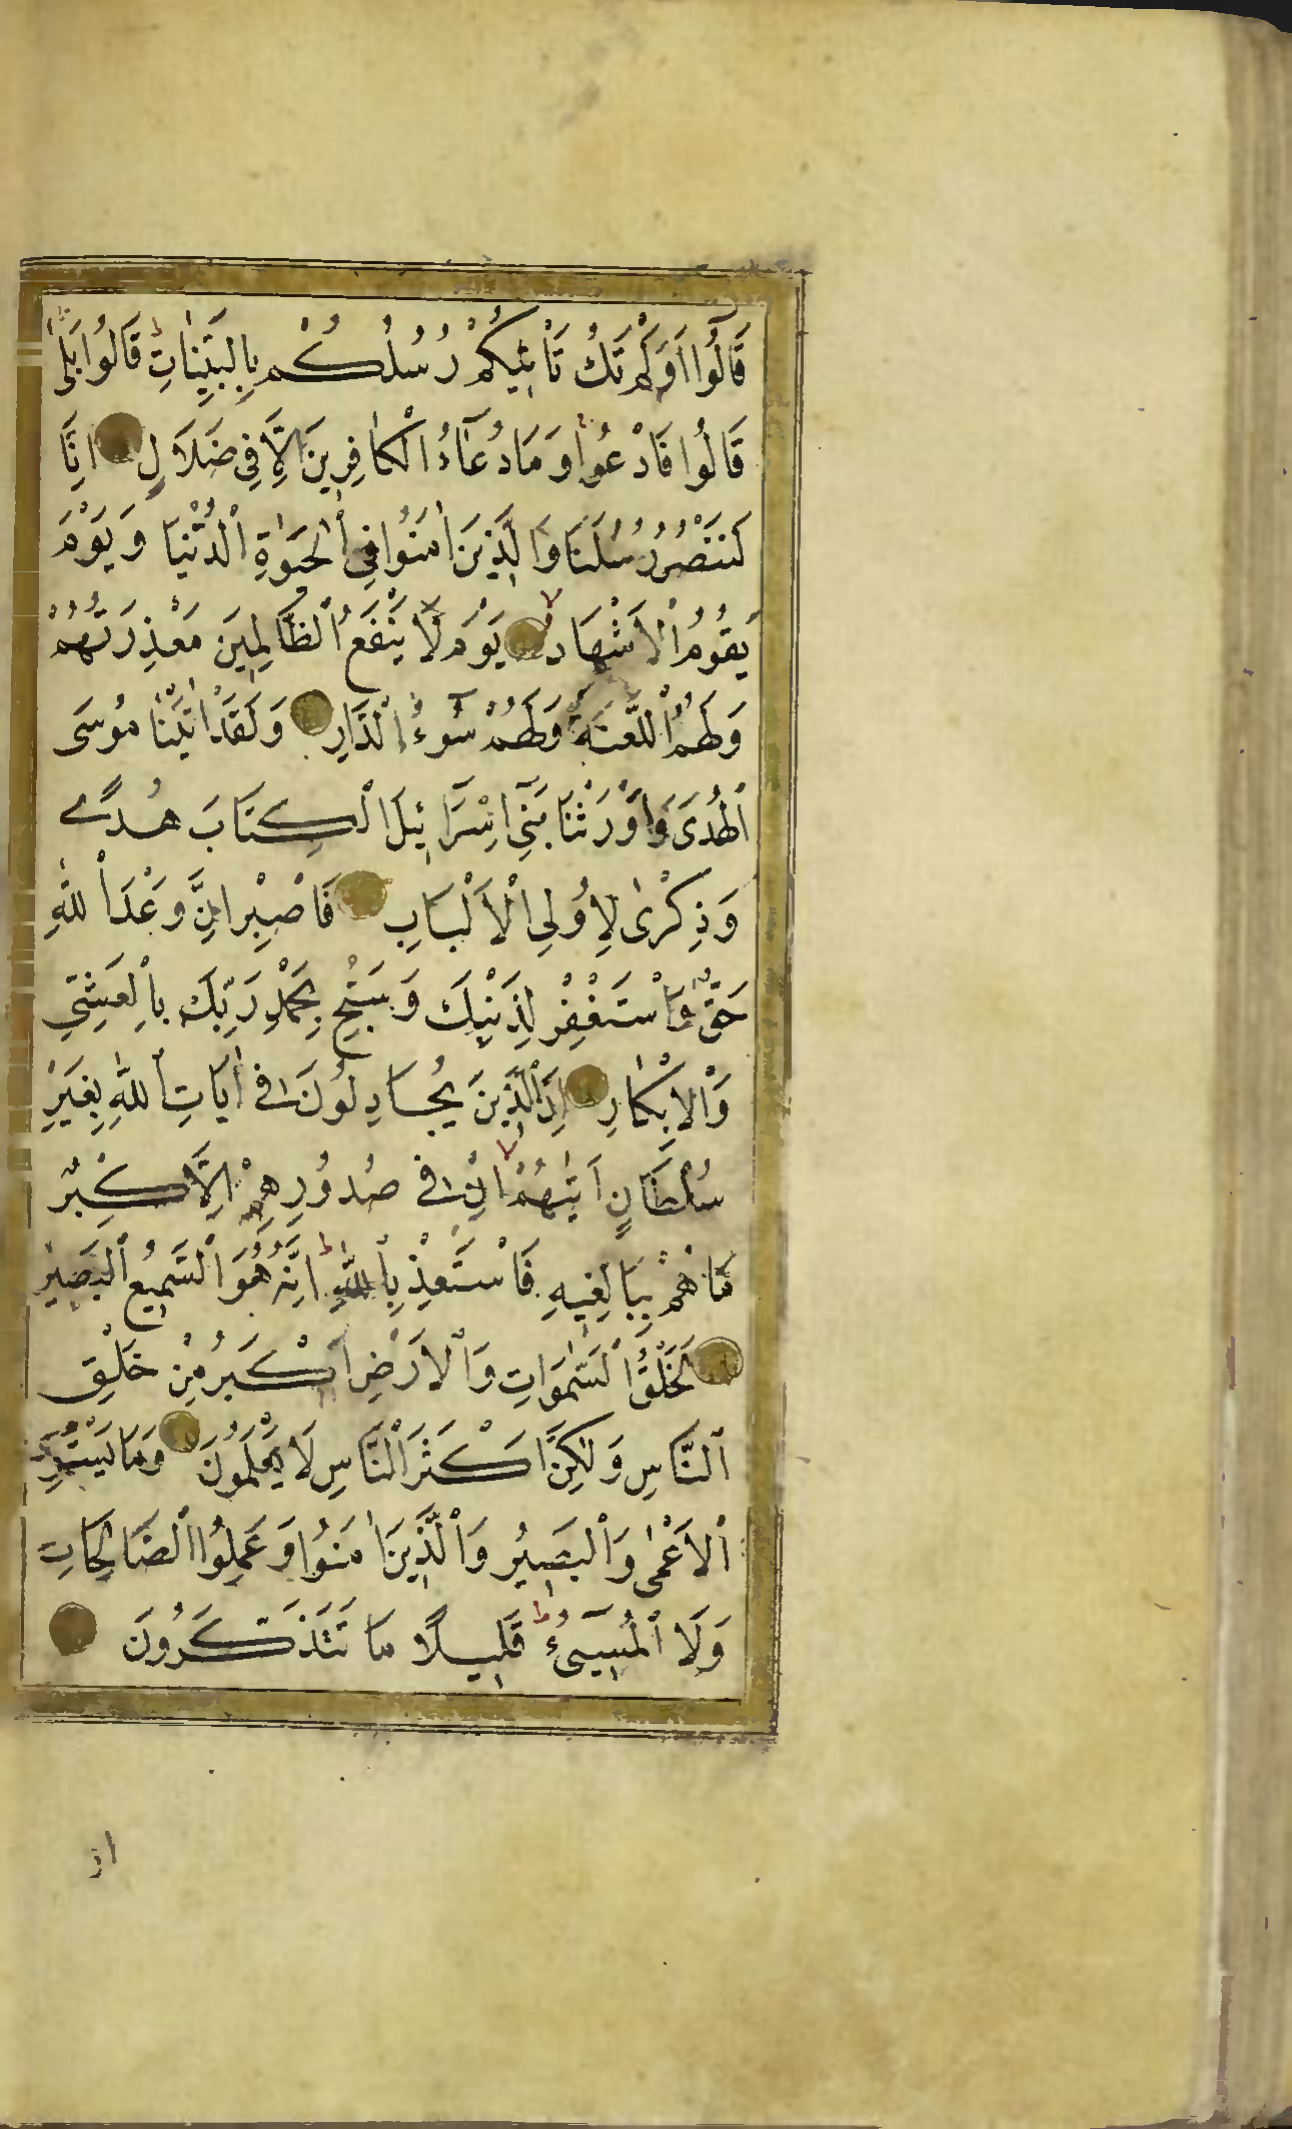 قَالُٓوا اَوَلَمْ تَكُ تَاْتٖيكُمْ رُسُلُكُمْ بِالْبَيِّنَاتِ ط قَالُوا بَلٰى
قَالُوا فَادْعُوا وَمَا دُعَآءُ الْكَافِرِينَ اِلَّا فِي ضَلَالٍ اِنَّا
لَنَنْصُرُ رُسُلَنَا وَالَّذِينَ اٰمَنُوا فِي الْحَيٰوةِ الدُّنْيَا وَيَوْمَ
يَقُومُ الْاَشْهَادُ يَوْمَ لَا يَنْفَعُ الظَّالِمِينَ مَعْذِرَتُهُمْ
وَلَهُمُ اللَّعْنَةُ وَلَهُمْ سُٓوءُ الدَّارِ وَلَقَدْ اٰتَيْنَا مُوسَى
الْهُدَى وَاَوْرَثْنَا بَنِٓي اِسْرَٓائِيلَ الْكِتَابَ هُدًى
وَذِكْرٰى لِاُولِي الْاَلْبَابِ فَاصْبِرْ اِنَّ وَعْدَ اللّٰهِ
حَقٌّ وَاسْتَغْفِرْ لِذَنْبِكَ وَسَبِّحْ بِحَمْدِ رَبِّكَ بِالْعَشِيِّ
وَالْاِبْكَارِ اِنَّ الَّذِينَ يُجَادِلُونَ فِي اٰيَاتِ اللّٰهِ بِغَيْرِ
سُلْطَانٍ اَتٰيهُمْ اِنْ فِي صُدُورِهِمْ اِلَّا كِبْرٌ
مَا هُمْ بِبَالِغِيهِ فَاسْتَعِذْ بِاللّٰهِ ط اِنَّهُ هُوَ السَّمِيعُ الْبَصِيرُ
لَخَلْقُ السَّمٰوَاتِ وَالْاَرْضِ اَكْبَرُ مِنْ خَلْقِ
النَّاسِ وَلٰكِنَّ اَكْثَرَ النَّاسِ لَا يَعْلَمُونَ وَمَا يَسْتَوِي
الْاَعْمٰى وَالْبَصِيرُ وَالَّذِينَ اٰمَنُوا وَعَمِلُوا الصَّالِحَاتِ
وَلَا الْمُسِٓيءُ ط قَلِيلًا مَا تَتَذَكَّرُونَ
ان